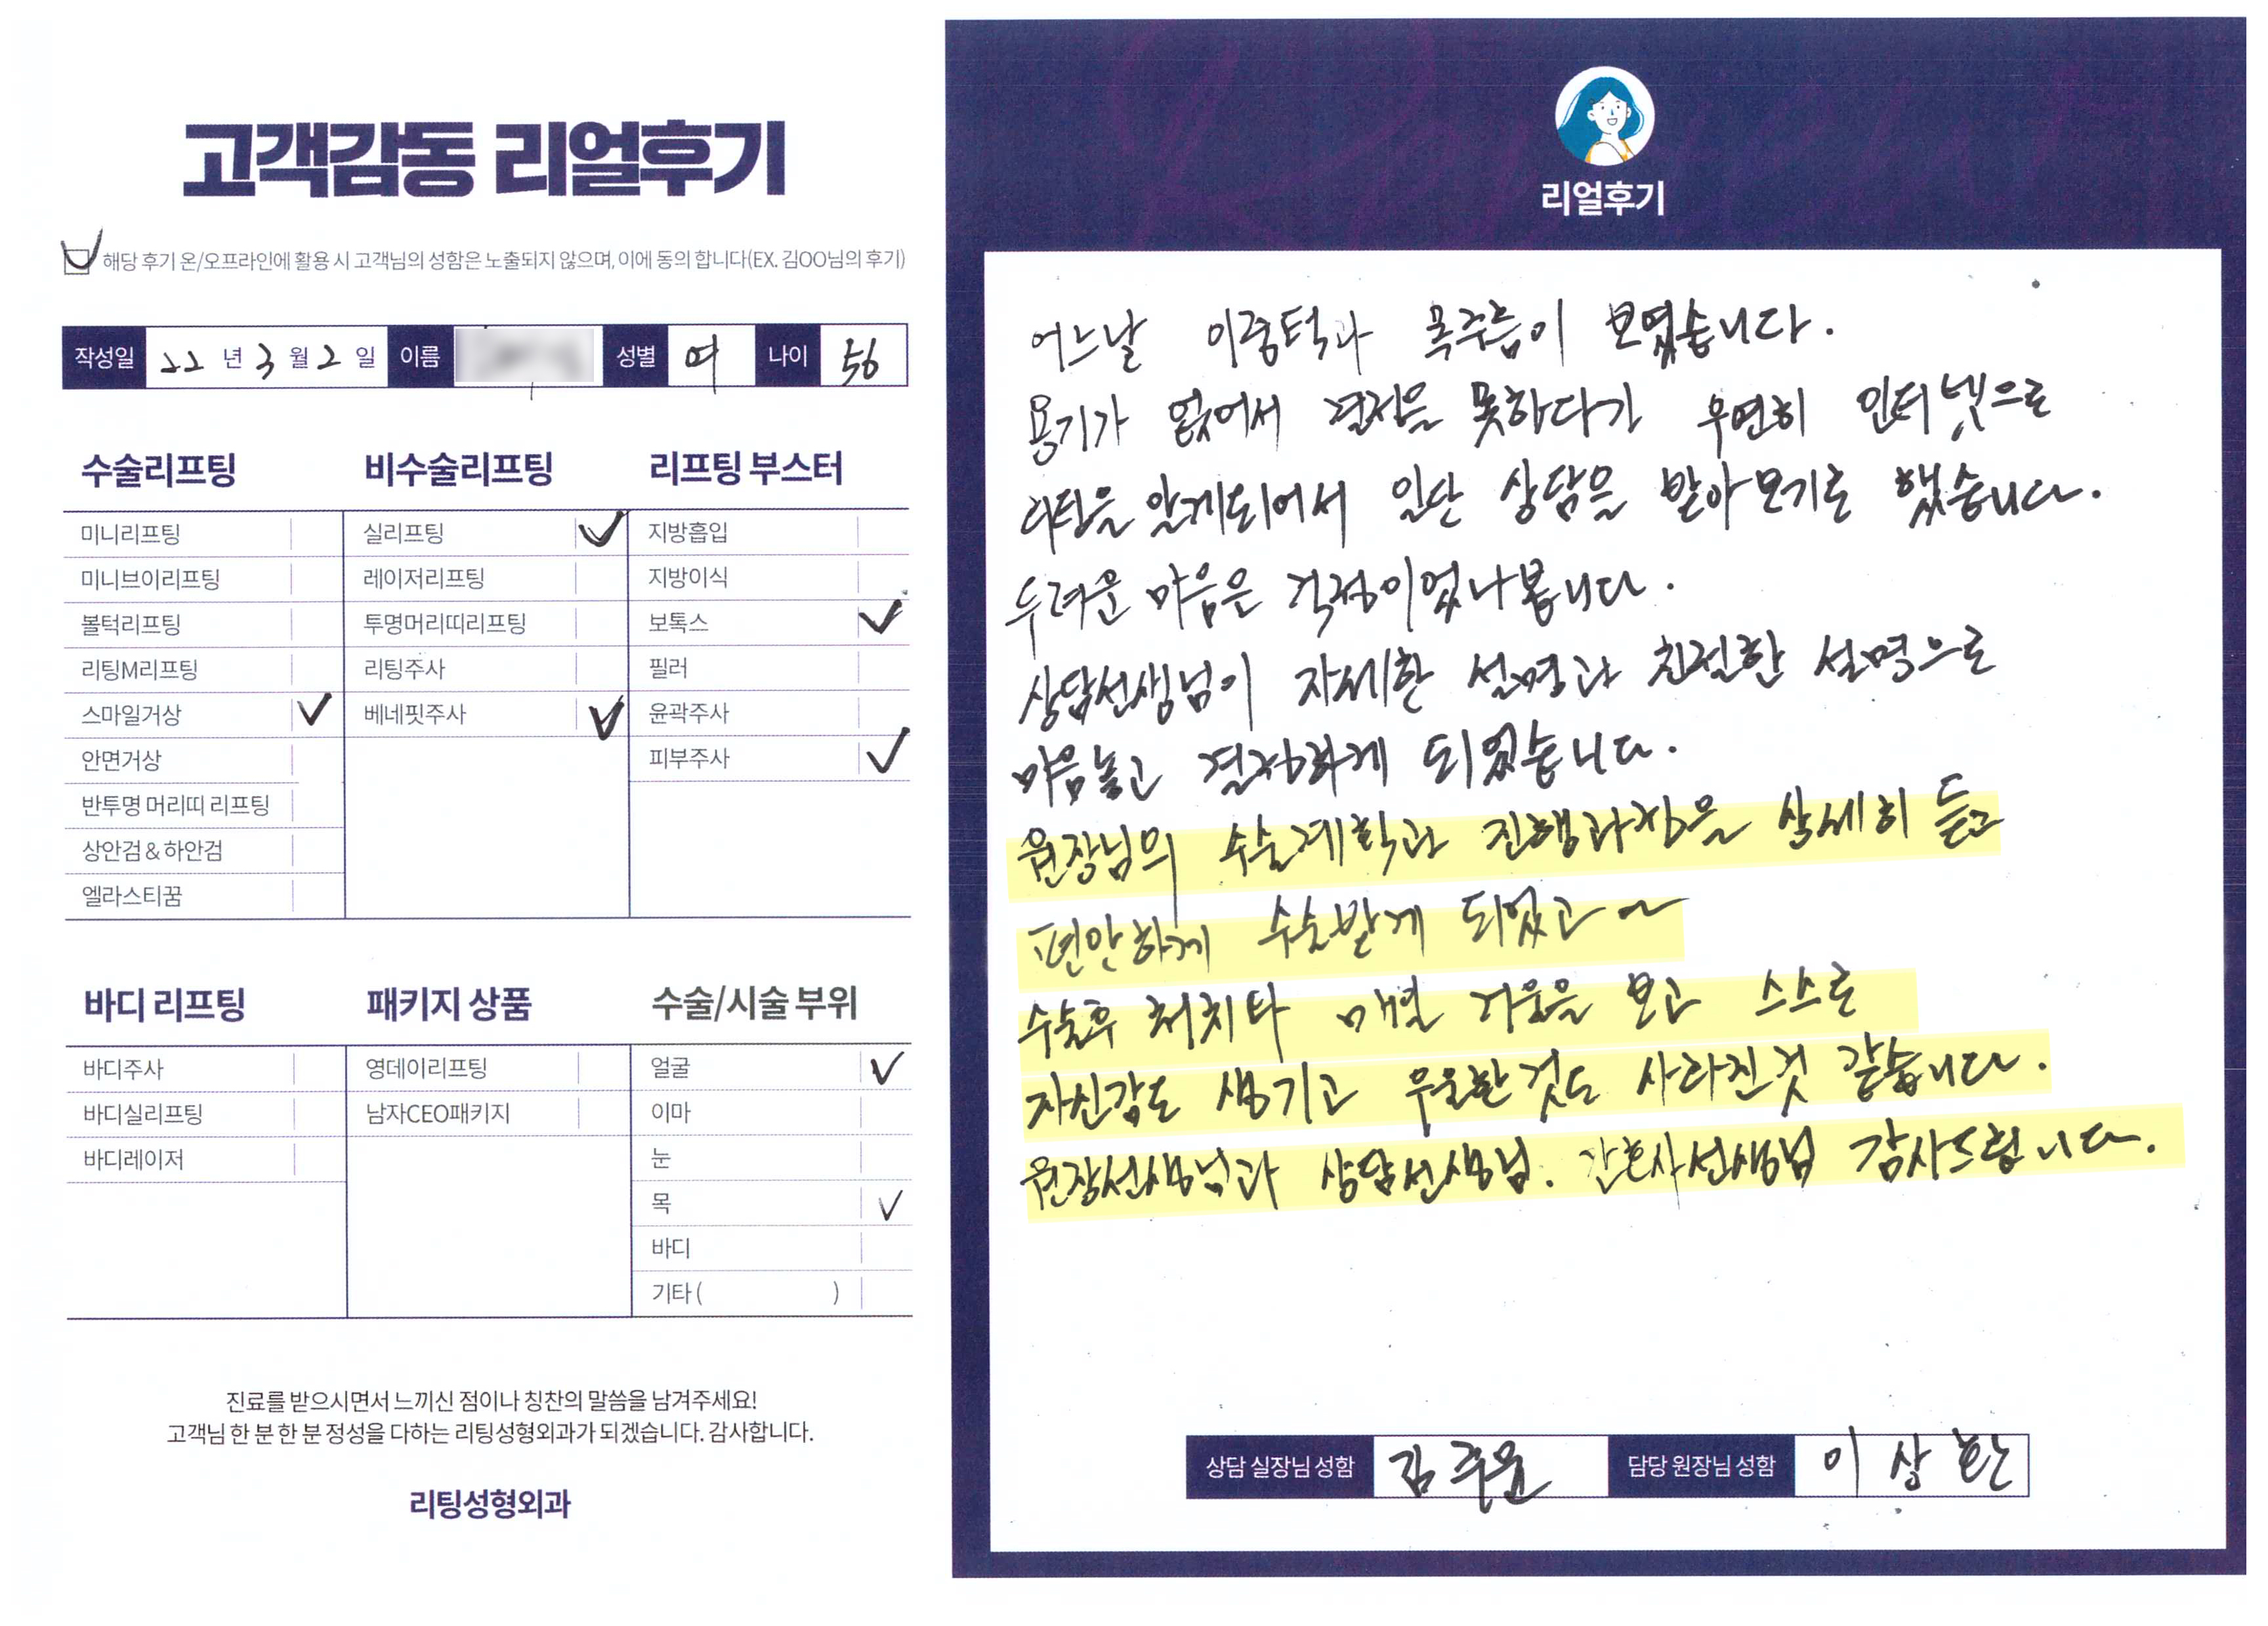 고객감동 리얼후기
해당 후기 온/오프라인에 활용 시 고객님의 성함은 노출되지 않으며, 이에 동의 합니다(EX. 김OO님의 후기)
작성일 22 년 3 월 2 일 이름 성별 여 나이 56
수술리프팅
미니리프팅
미니브이리프팅
볼턱리프팅
리팅M리프팅
스마일거상
안면거상
반투명 머리띠 리프팅
상안검 & 하안검
엘라스티꿈
비수술리프팅
실리프팅
레이저리프팅
투명머리띠리프팅
리팅주사
베네핏주사
리프팅 부스터
지방흡입
지방이식
보톡스
필러
윤곽주사
피부주사
바디 리프팅
바디주사
바디실리프팅
바디레이저
패키지 상품
영데이리프팅
남자CEO패키지
수술/시술 부위
얼굴
이마
눈
목
바디
기타 ( )
진료를 받으시면서 느끼신 점이나 칭찬의 말씀을 남겨주세요!
고객님 한 분 한 분 정성을 다하는 리팅성형외과가 되겠습니다. 감사합니다.
리팅성형외과
리얼후기
어느날 이중턱과 목주름이 보였습니다.
용기가 없어서 결정을 못하다가 우연히 인터넷으로
리팅을 알게되어서 일단 상담을 받아보기로 했습니다.
두려운 마음은 걱정이었나봅니다.
상담선생님이 자세한 설명과 친절한 설명으로
마음놓고 결정하게 되었습니다.
원장님의 수술계획과 진행과정을 상세히 듣고
편안하게 수술받게 되었고~
수술후 처치타 매일 거울을 보고 스스로
자신감도 생기고 우울한것도 사라진것 같습니다.
원장선생님과 상담선생님. 간호사선생님 감사드립니다.
상담 실장님 성함 김주윤 담당 원장님 성함 이상환